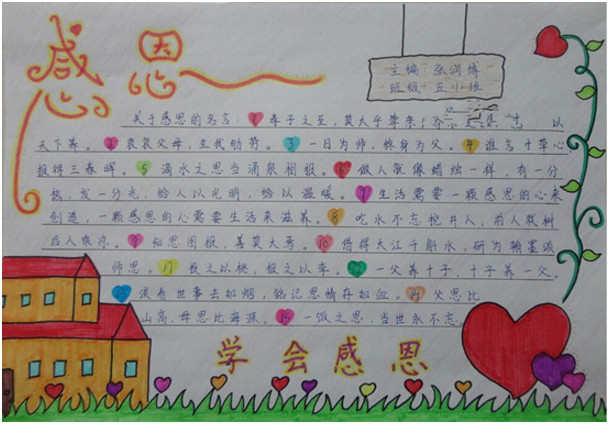 感恩
主编 张润博
班级 五小班
关于感恩的名言：1 孝子之至，莫大乎尊亲；以
天下养。2 哀哀父母，生我劬劳。3 一日为师，终身为父。4 谁言寸草心
报得三春晖。5 滴水之恩当涌泉相报。6 做人就像蜡烛一样，有一分
热，发一分光，给人以光明，给以温暖。7 生活需要一颗感恩的心来
创造，一颗感恩的心需要生活来滋养。8 吃水不忘挖井人，前人栽树
后人乘凉。9 知恩图报，善莫大焉。10 借得大江千斛水，研为翰墨颂
师恩。11 投之以桃，报之以李。12 一父养十子，十子养一父。
13 淡看世事去如烟，铭记恩情存如血。14 父恩比
山高，母恩比海深。15 一饭之恩，当世永不忘。
学会感恩